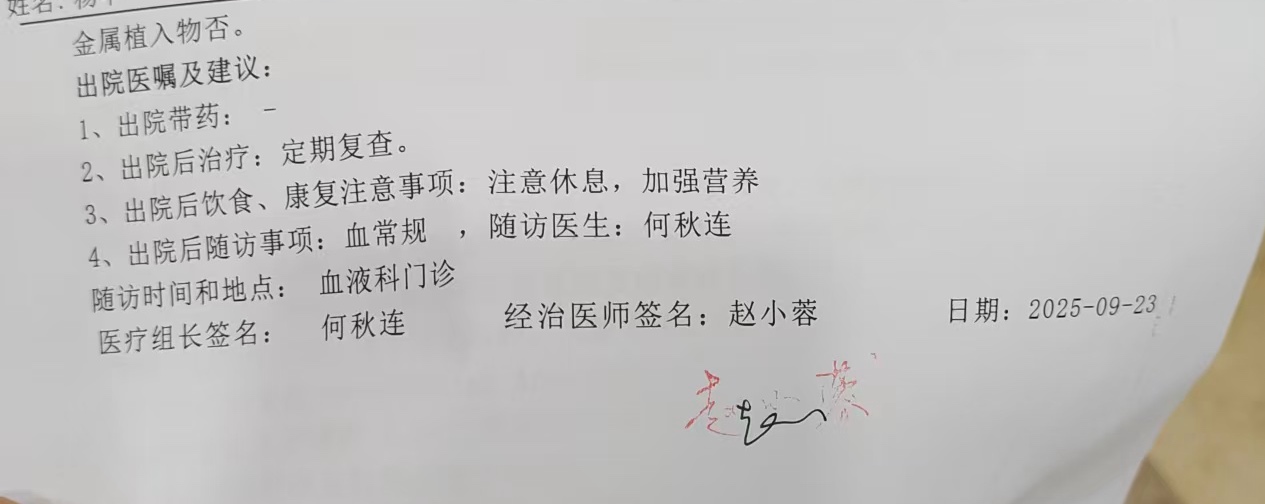 姓名：杨
金属植入物否。
出院医嘱及建议：
1、出院带药： -
2、出院后治疗：定期复查。
3、出院后饮食、康复注意事项：注意休息，加强营养
4、出院后随访事项：血常规 ，随访医生：何秋连
随访时间和地点： 血液科门诊
医疗组长签名： 何秋连 经治医师签名：赵小蓉 日期：2025-09-23